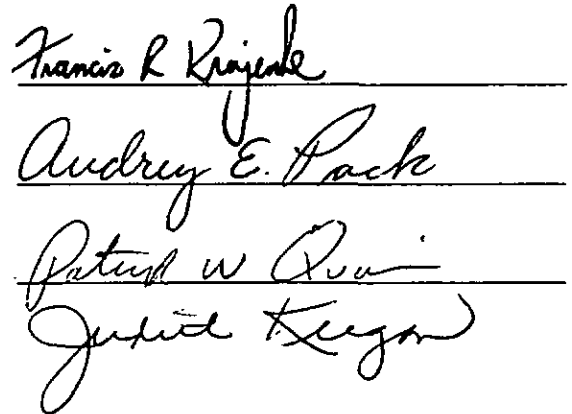 Francis R
Audrey E. Pack
Patrick W Quinn
Judith Keegan